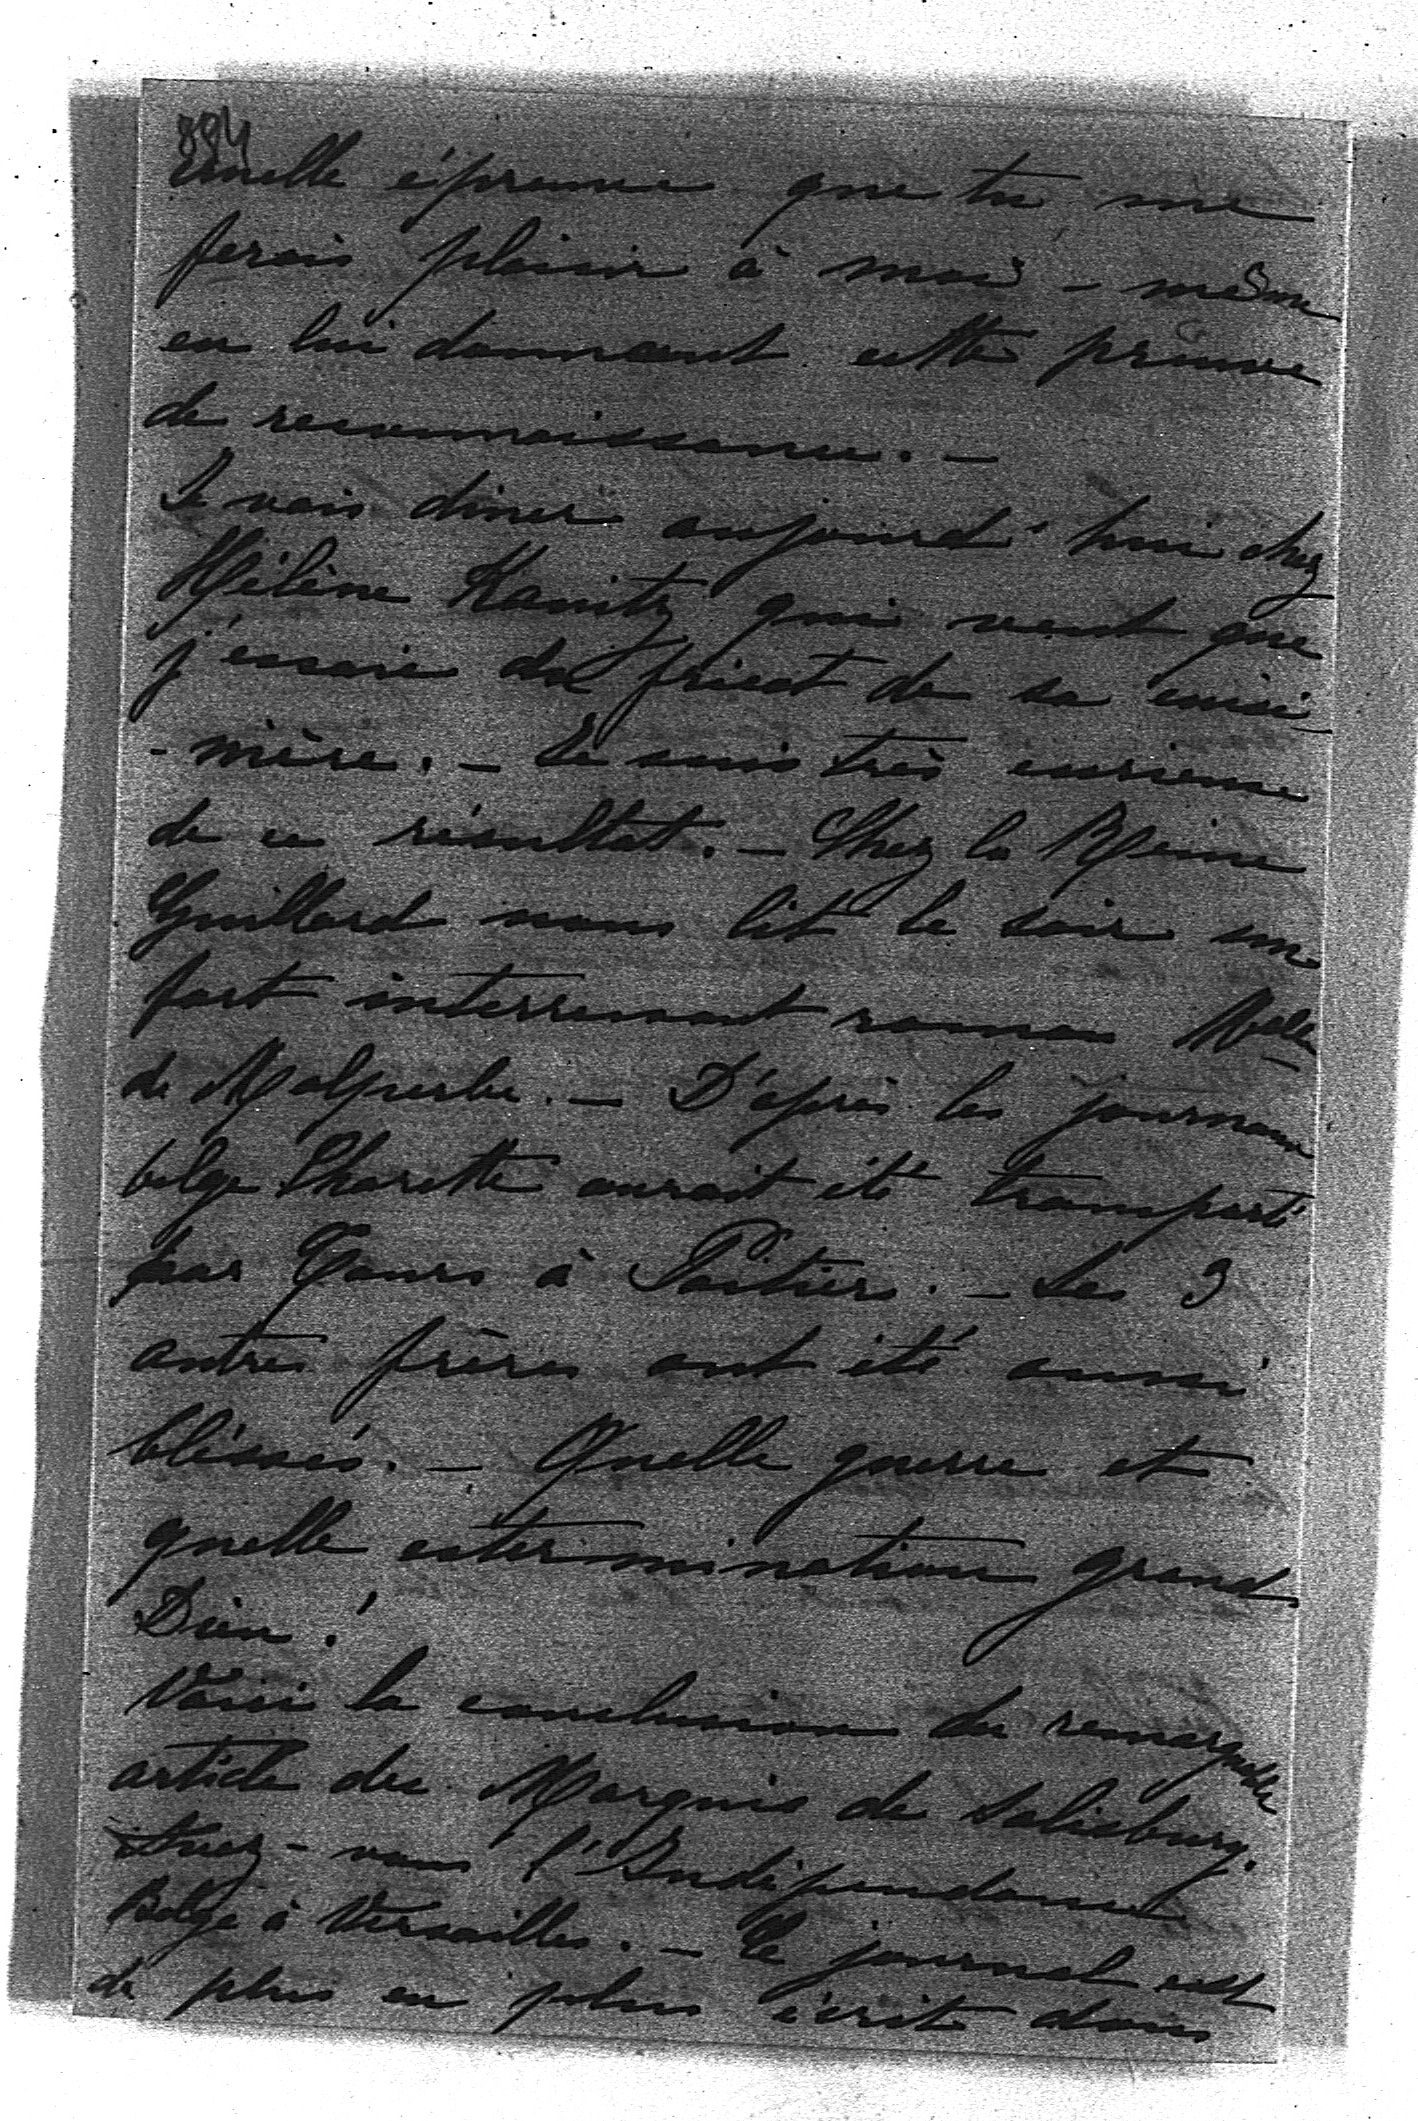 884
cruelle épreuve que tu me
ferais plaisir à moi-même
en lui donnant cette preuve
de reconnaissance. –
Je vais dîner aujourd'hui chez
Hélène Kanitz qui veut que
j'essaie du fricot de sa cuisi
-nière. – Je suis très curieuse
de ce résultat. – Chez la Reine
Guillard nous lit le soir un
fort interressant roman Melle
de Malpeirbe. – D'après les journaux
belge Charette aurait été transporté
par Tours à Poitier. – Les 3
autres frères ont été aussi
blessés. – Quelle guerre et
quelle extermination grand
Dieu !
Voici la conclusion du remarquable
article du Marquis de Salisbury.
Avez-vous l'Indépendance
Belge à Versailles. – Ce journal est
de plus en plus écrit dans